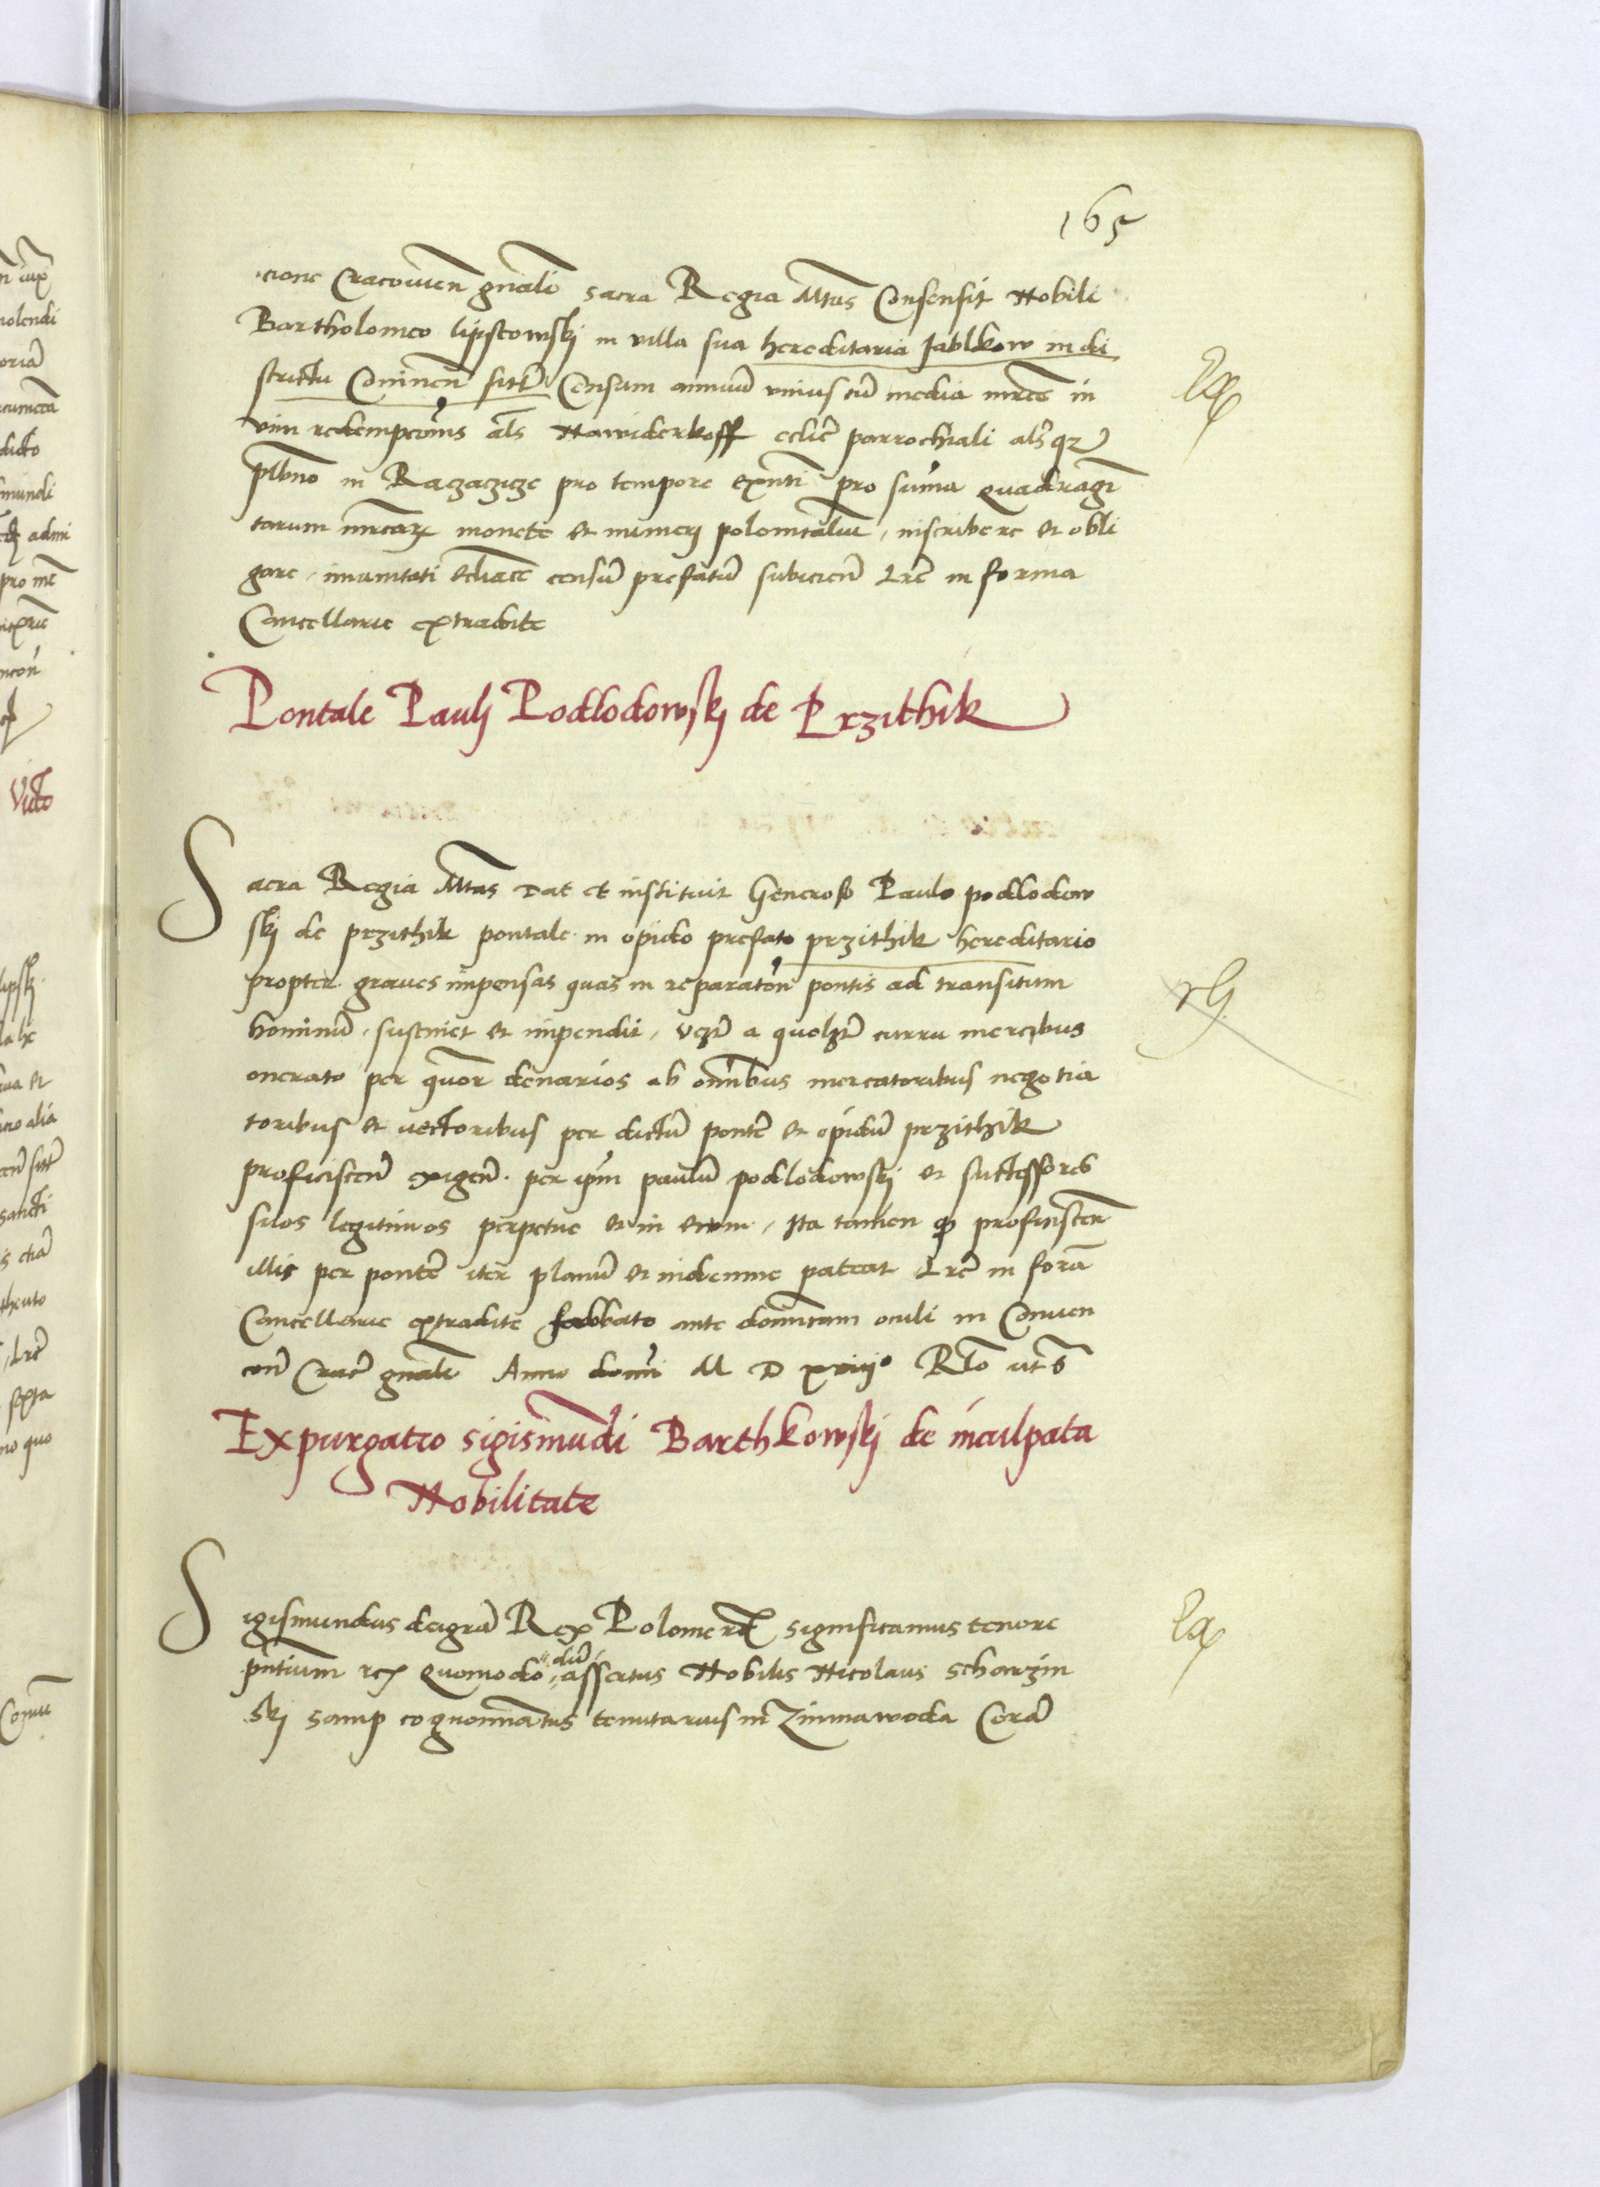 165
cione Cracovien gnali sacra Regia Mtas Consensit Nobili
Bartholomeo lipscowskj in villa sua hereditaria Jablkow in di
strictu Coninen sitis Censum annuum unius cum media mrce in
vim redempcionis als Nawiderkoff eclie parrochiali alsqz
plbno in Raczazicze pro tempore exnti pro suma quadragin
tarum mrcarum monete et numeri polonicalium, inscribere et obli
gare, imunitati ecliastice censum prefatum subiicien Lre in forma
Cancellarie extradite
Pontale Paulj Podlodowskj de Przithik
Sacra Regia Mtas Dat et instituit Generoso Paulo podlodow
skj de przithik pontale in opido prefato przithik hereditario
propter graves impensas quas in reparaton pontis ad transitum
hominum, sustinet et impendit, vczt a quolzt curru mercibus
onerato per quor denarios ab omnibus mercatoribus negotia
toribus et vectoribus per dictum pontem et opidum przithik
proficiscen exigen per ipm paulum podlodowskj et successores
suos legitimos perpetue et in evum, Ita tamen quod proficiscen
illis per pontem iter planum et indemne pateat Lre in forma
Cancellarie extradite sabbato ante dominicam oculi in Conven
cone Crac gnali Anno domini M D xviij Rto ut s
Expurgatio sigismundi Barthkowskj de inculpata
Nobilitate
Sigismundus dei gra Rex Polonie etc significamus tenore
pntium rex Quomodo dum assertus Nobilis Nicolaus scharzin
skj samp cognominatus tenutarius in Zimnawoda Coram